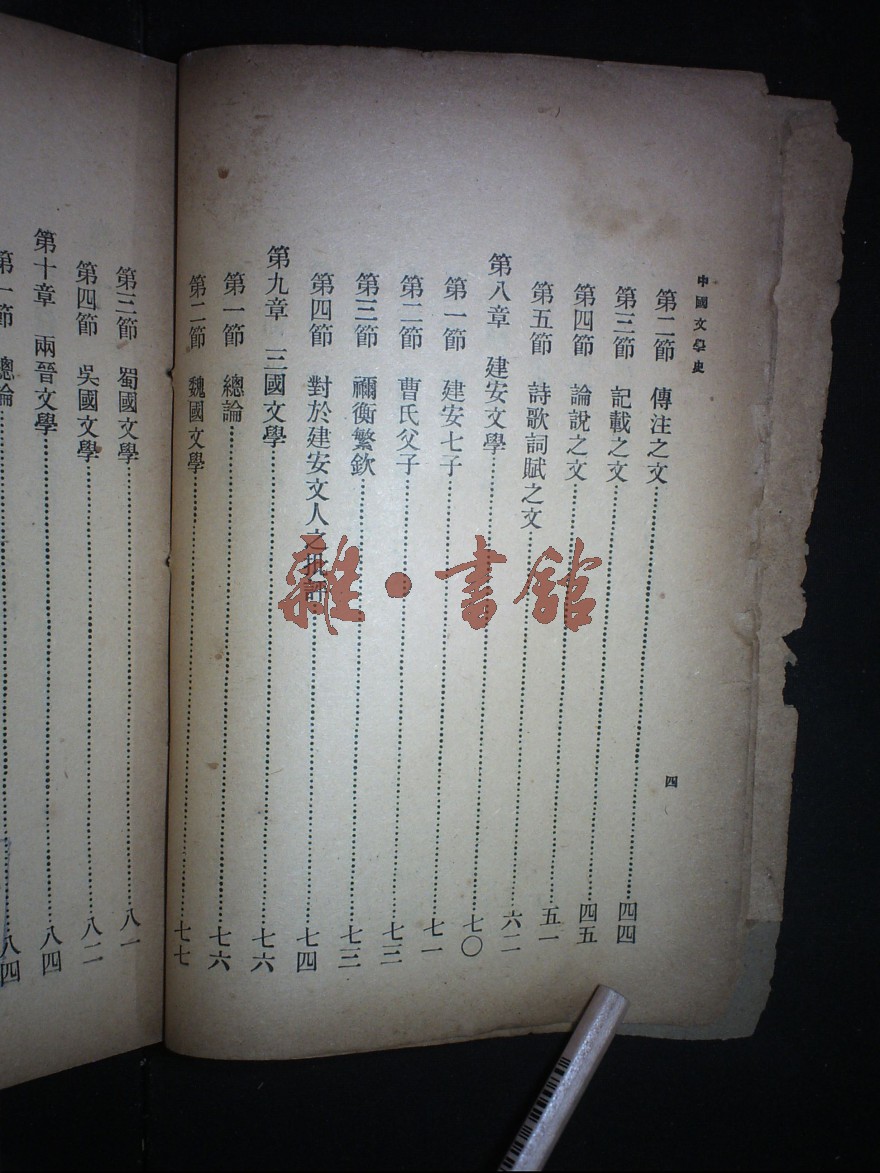 中國文學史
四
第二節 傳注之文……四四
第三節 記載之文……四五
第四節 論說之文……五一
第五節 詩歌詞賦之文……六二
第八章 建安文學……七〇
第一節 建安七子……七一
第二節 曹氏父子……七三
第三節 禰衡繁欽……七三
第四節 對於建安文人之批評……七四
第九章 三國文學……七六
第一節 總論……七六
第二節 魏國文學……七七
第三節 蜀國文學……八一
第四節 吳國文學……八二
第十章 兩晉文學……八四
第一節 總論……八四
雜·書館